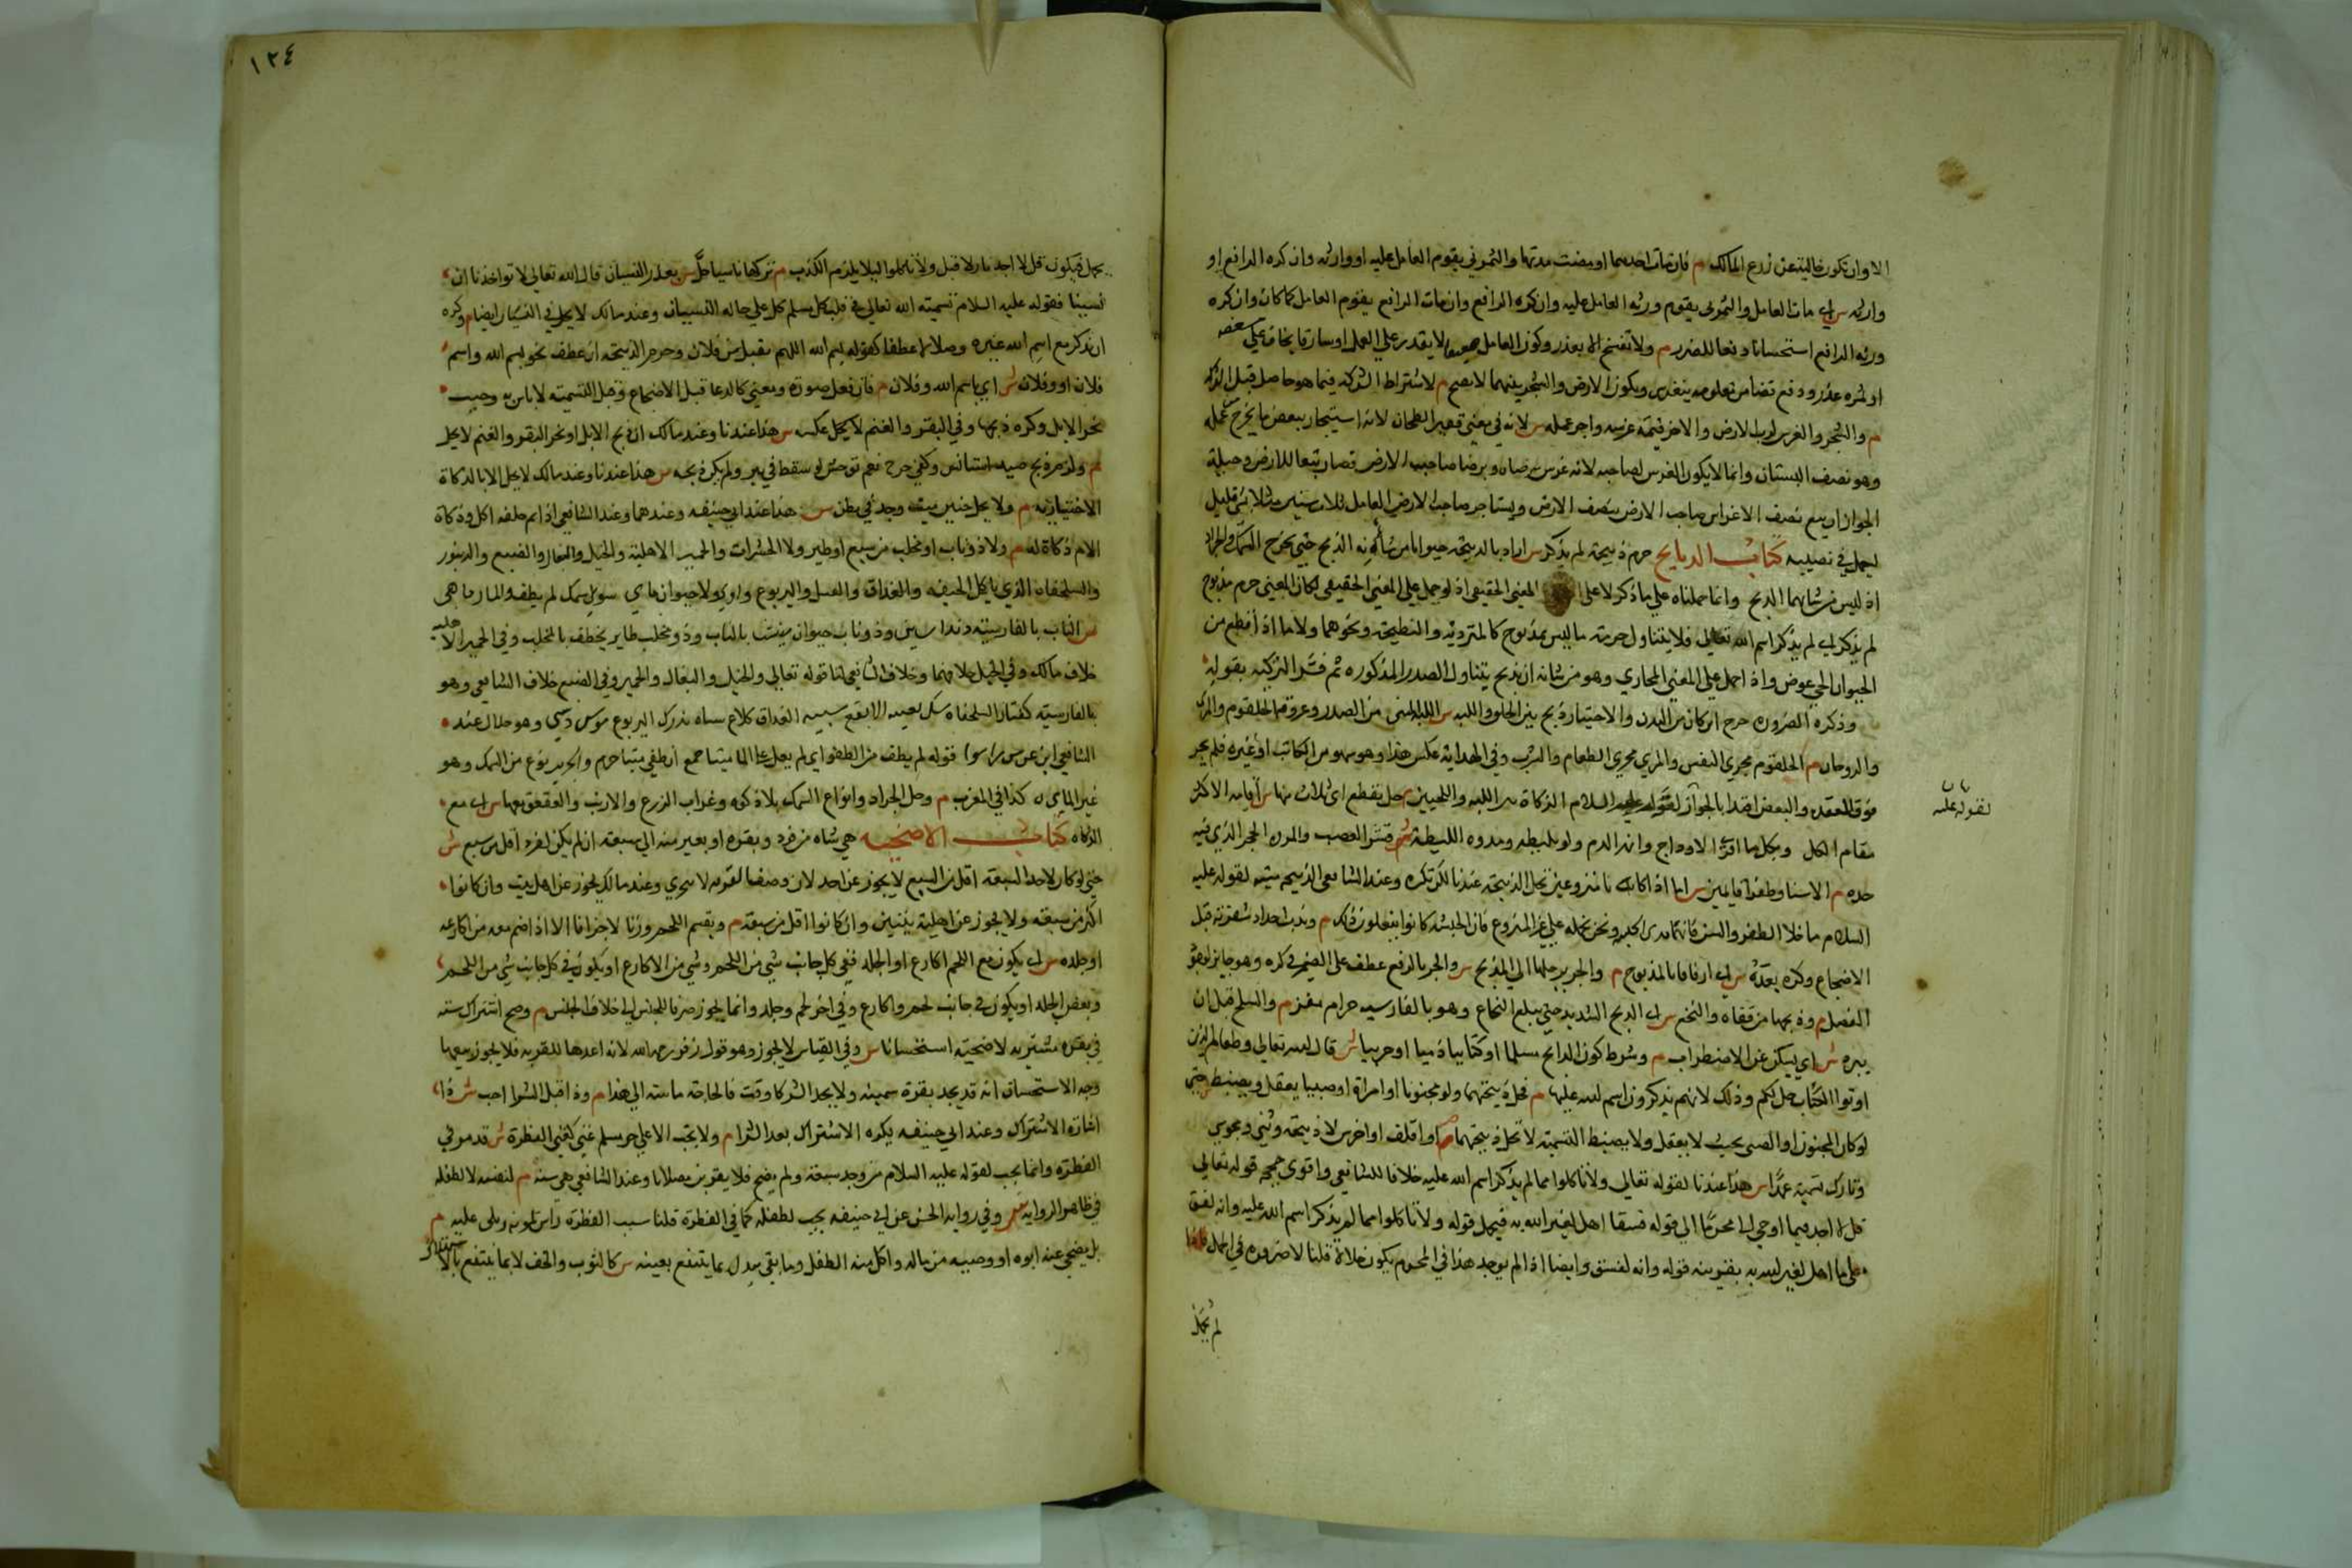 الا وان تكون خالية عن زرع المالك م فان مات احدهما او مضت مدتها والثمر ني يقوم العامل عليه او وارثه وان كره الدافع او
وارثه س اي مات العامل والثمر ني يقوم ورثه العامل عليه وان كره الدافع وان مات الدافع يقوم العامل كما كان وان كره
ورثه الدافع استحسانا دفعا للضرر م ولا تفسخ الا بعذر وكون العامل مريضا لا يقدر علي العمل او سارقا يخاف علي سعفه
او ثمره عذر ودفع فضا مدة معلومه ليغرس ويكون الارض والشجر بينهما لا يصح م لاشتراط الشركه فيما هو حاصل قبل الشركه
م والثمر والغرس لرب الارض والاخر قيمة غرسه واجر عمله س لانه في معني قفيز الطحان لانه استيجار ببعض ما يخرج من عمله
وهو نصف البستان وانما لا يكون الغرس لصاحبه لانه غرس برضاه ورضا صاحب الارض فصار تبعا للارض وحيلة
الجواز ان يبيع نصف الاغراس صاحب الارض بنصف الارض ويستاجر صاحب الارض العامل ثلاث سنين مثلا بشي قليل
ليعمل في نصيبه كتاب الذبايح حرم ذبيحة لم يذكر س اراد بالذبيحة حيوانا من شأنه الذبح حتي يخرج السمك والجراد
اذ ليس من شانهما الذبح وانما حملناه علي ما ذكر لا علي المعني الحقيقي اذ لو حمل علي المعني الحقيقي لكان المعني حرم مذبوح
لم يذكر اي لم يذكر اسم الله تعالي فلا يتناول حرمة ما ليس بمذبوح كالمتردية والنطيحة ونحوهما ولا ما اذا قطع من
الحيوان الحي عوض واذا حمل علي المعني المجازي وهو من شانه ان يذبح يتناول الصدر المذكوره ثم فسر التزكيه بقوله
وذكوه الضروره جرح اين كان من البدن والاختيار ذبح بين الحلق واللبه س اللبه المنحر من الصدر وعروقه الحلقوم والمري
والودجان م الحلقوم مجري النفس والمري مجري الطعام والشرب وفي الهداية عكس هذا وهو سهو من الكاتب او غيره فلم يجز
فوق العقده والبعض افتدا بالجواز لقوله عليه السلام الزكاة بين اللبه واللحيين م وحل بقطع اي ثلاث منها س اقامه الاكثر
مقام الكل وبكل ما افري الاوداج وانهر الدم ولو بليطه ومروه الليطة ش قشر القصب والمروه الحجر الذي فيه
حده م الا سنا وظفرا قايمين س اما اذا كانا نازعين تحل الذبيحة عندنا لكن تكره وعند الشافعي الذبيحه ميته لقوله عليه
السلام ما خلا الظفر والسن فانهما مدي الحبشه ونحن نحمله علي غير المنزوع فان الحبشه كانوا يفعلون ذلك م وندب احداد شفرته قبل
الاضجاع وكره بعده س اي ارفاقا بالمذبوح م والجر برجلها الي المذبح س والجر بالرفع عطف علي الضمير في كره وهو جايز لوجود
الفصل م وذبحها من قفاه والنخع س اي الذبح الشديد حتي يبلغ النخاع وهو بالفارسيه حرام مغز م والسلخ قبل ان
يبرد ش اي يسكن عن الاضطراب م وشرط كون الذابح مسلما او كتابيا ذميا او حربيا ش قال الله تعالي وطعام الذين
اوتوا الكتاب حل لكم وذلك لانهم يذكرون اسم الله عليها م فحل ذبيحتهما ولو مجنونا او امراة او صبيا يعقل ويضبط حتي
لو كان المجنون او الصبي بحيث لا يعقل ولا يضبط التسمية لا تحل ذبيحتهما م او اقلف او اخرس لا ذبيحة وثني ومجوسي
وتارك تسمية عمدا س هذا عندنا لقوله تعالي ولا تاكلوا مما لم يذكر اسم الله عليه خلافا للشافعي واقوي حججه قوله تعالي
قل لا اجد فيما اوحي الي محرما الي قوله فسقا اهل لغير الله به فيحمل قوله ولا تاكلوا مما لم يذكر اسم الله عليه وانه لفسق
علي ما اهل لغير الله به بقرينه قوله وانه لفسق وايضا اذا لم يوجد هذا في المحرم يكون حلالا قلنا لا ضروره في الحمل فاذا
لم يحمل
لقوله عليه
١٢٤
يحمل فيكون قل لا اجد نازلا قبل ولا تاكلوا لئلا يلزم الكذب م تركها ناسيا حل س بعذر النسيان قال الله تعالي لا تواخذنا ان
نسينا فقوله عليه السلام تسمية الله تعالي في قلب كل مسلم كل علي حاله النسيان وعند مالك لا يحل في النسيان ايضا م وكره
ان يذكر مع اسم الله غيره وصلا لا عطفا كقوله بسم الله اللهم تقبل من فلان وحرم الذبيحة ان عطف نحو بسم الله واسم
فلان او وفلان ش اي باسم الله وفلان م فان فصل صورة ومعني كالدعا قبل الاضجاع وقبل التسمية لا باس به وحبب
نحر الابل وكره ذبحها وفي البقر والغنم لا يحل عكسه س هذا عندنا وعند مالك ان ذبح الابل او نحر البقر والغنم لا يحل
م ولزم ذبح صيد استانس وكفي جرح نعم توحش او سقط في بير ولم يمكن ذبحه س هذا عندنا وعند مالك لا يحل الا بالذكاة
الاختياريه م ولا يحل جنين ميت وجد في بطن س هذا عند ابي حنيفه وعندهما وعند الشافعي اذا تم خلقه اكل وذكاة
الام ذكاة له م ولا ذو ناب او مخلب من سبع او طير ولا الحشرات والحمر الاهلية والخيل والبغال والضبع والزنبور
والسلحفاه والابقع الذي ياكل الجيف والغداف والفيل واليربوع وابن عرس ولا حيوان ماي سوي سمك لم يطف والمارماهي
س الناب بالفارسيه دندان نيش وذو ناب حيوان ينهش بالناب وذو مخلب طاير يخطف بالمخلب وفي الحمر الاهليه
خلاف مالك وفي الخيل خلافهما وخلاف الشافعي لنا قوله تعالي والخيل والبغال والحمير وفي الضبع خلاف الشافعي وهو
بالفارسيه كفتار السلحفاه سنك پشت الابقع پيسه الغداف كلاغ سياه بزرك اليربوع موش دشتي وهو حلال عند
الشافعي ابن عرس راسو قوله لم يطف من الطفو اي لم يعل علي الما ميتا حتي ان طفي ميتا حرم والجريث نوع من السمك وهو
غير المارماهي كذا في المغرب م وحل الجراد وانواع السمك بلا ذكوه وغراب الزرع والارنب والعقعق بها س اي مع
الذكاه كتاب الاضحيه هي شاه من فرد وبقره او بعير منه الي سبعة ان لم يكن لفرد اقل من سبع ش
حتي لو كان لاحد السبعة اقل من السبع لا يجوز عن احد لان وصف القربه لا يتجزي وعند مالك يجوز عن اهل بيت وان كانوا
اكثر من سبعة ولا يجوز عن اهل بيتين وان كانوا اقل من سبعة م ويقسم اللحم وزنا لا جزافا الا اذا ضم معه من اكارعه
او جلده س اي يكون مع اللحم اكارع او الجلد ففي كل جانب شي من اللحم وشي من الاكارع او يكون في كل جانب شي من اللحم
وبعض الجلد او يكون في جانب لحم واكارع وفي اخر لحم وجلد وانما يجوز صرفا للجنس الي خلاف الجنس م وصح اشتراك سته
في بقره مشتريه لاضحيته استحسانا س وفي القياس لا يجوز وهو قول زفر رحمه الله لانه اعدها للقربه فلا يجوز بيعها
وجه الاستحسان انه قد يجد بقرة سمينه ولا يجد الشركا وقت البيع فالحاجة ماسته الي هذا م وذا قبل الشرا احب ش ذا
اشارة الاشتراك وعند ابي حنيفه يكره الاشتراك بعد الشرا م ولا تجب الا علي حر مسلم غني كغني الفطرة ش قد مر في
الفطره وانما يجب لقوله عليه السلام من وجد سعة ولم يضح فلا يقربن مصلانا وعند الشافعي هي سنه م لنفسه لا لطفله
في ظاهر الروايه ش وفي روايه الحسن عن ابي حنيفه يجب لطفله كما في الفطرة قلنا سبب الفطرة راس يمونه ويلي عليه م
بل يضحي عنه ابوه او وصيه من ماله واكل منه الطفل وما بقي يبدل بما ينتفع بعينه س كالثوب والخف لا بما ينتفع بالاستهلاك